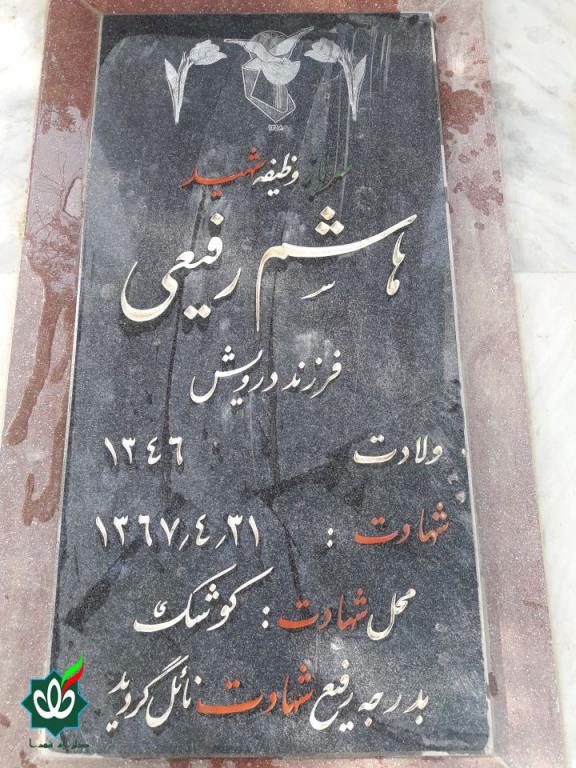 سرباز وظیفه شهید
هاشم رفیعی
فرزند درویش
ولادت ١٣٤٦
شهادت : ١٣٦٧٫٤٫٣١
محل شهادت : کوشک
بدرجه رفیع شهادت نائل گردید